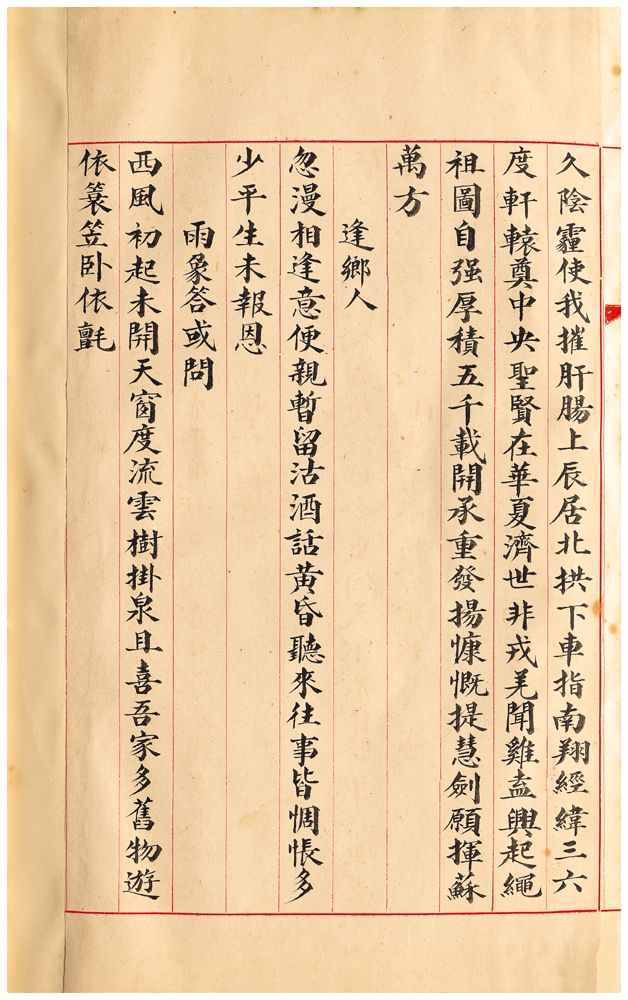 久陰霾使我摧肝腸上辰居北拱下車指南翔經緯三六
度軒轅奠中央聖賢在華夏濟世非戎羌聞雞盍興起繩
祖圖自强厚積五千載開承重發揚慷慨提慧劍願揮蘇
萬方
逢鄉人
忽漫相逢意便親暫留沽酒話黃昏聽來往事皆惆悵多
少平生未報恩
雨象答或問
西風初起未開天窗度流雲樹掛泉且喜吾家多舊物遊
依簑笠卧依氈